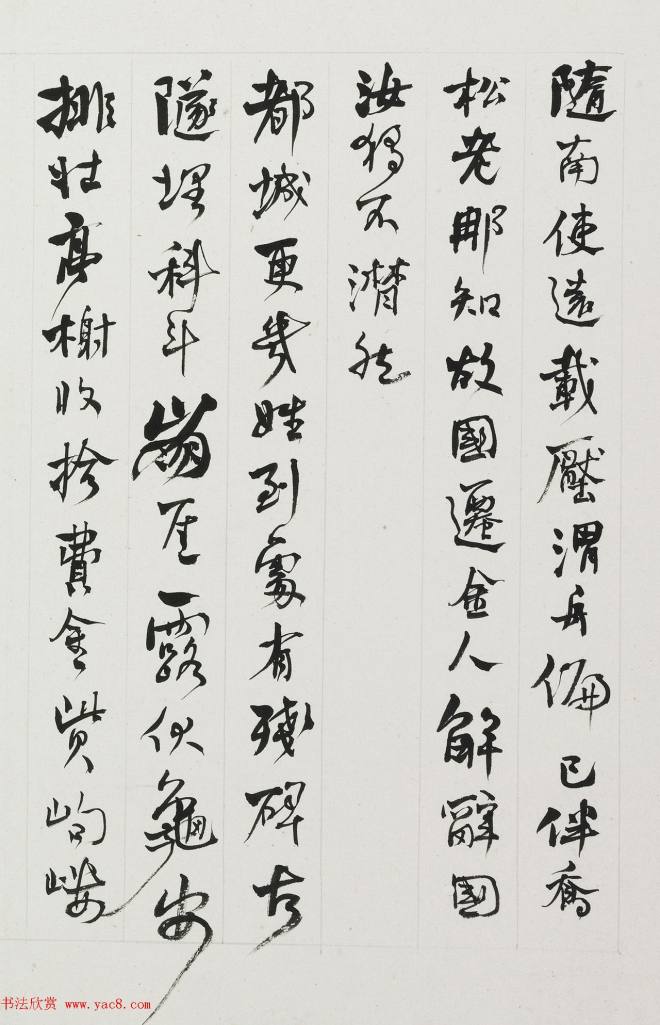 隨南使遠載壓渭舟偏已伴喬
松老那知故國遷金人解辭國
汝獨不潸然
都城更幾姓到處有殘碑古
隧埋科斗崩崖露伏龜安
排壯亭榭收拾費金貲岣嶁
书法欣赏 www.yac8.com